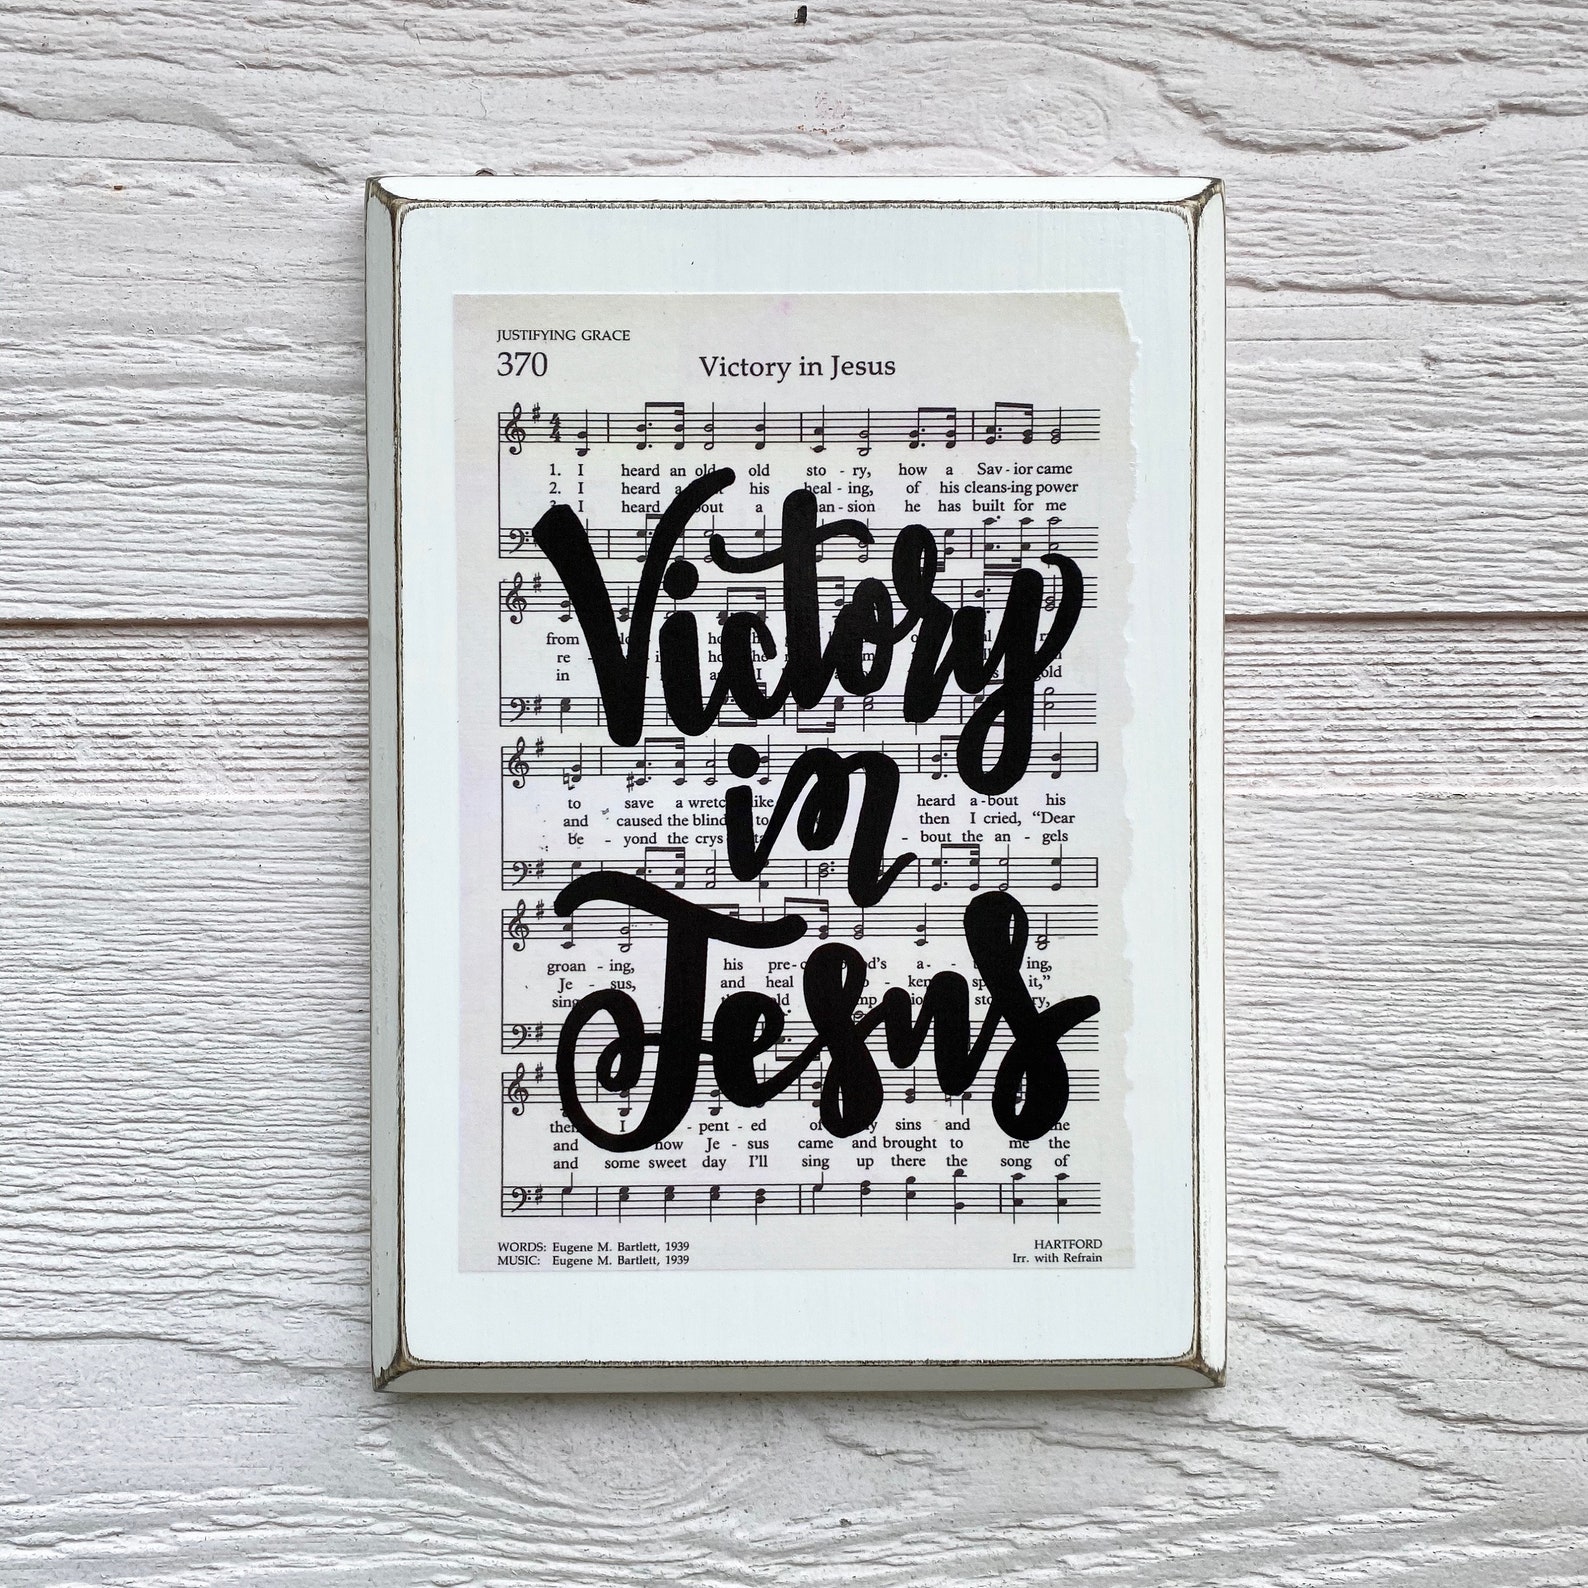 JUSTIFYING GRACE
370
Victory in Jesus
1. I heard an old, old sto - ry, how a Sav - ior came
2. I heard his heal - ing, of his cleans-ing power
I heard a he has built for me
from
re -
in gold
to save a wretch like heard a - bout his
and caused the blind to then I cried, "Dear
be - yond the crys - bout the an - gels
groan - ing, his pre - a - ing,
Je - sus, and heal it,"
sing
Victory
in
Jesus
I - pent - ed of sins and
and how Je - sus came and brought to me the
and some sweet day I'll sing up there the song of
WORDS: Eugene M. Bartlett, 1939
MUSIC: Eugene M. Bartlett, 1939
HARTFORD
Irr. with Refrain